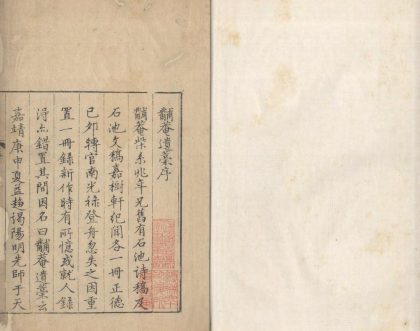 黼菴遺藁序
黼菴柴系兆年兄舊有石池詩稿及
石池文稿嘉樹軒紀聞各一冊正德
己卯轉官南光祿登舟忽失之因重
置一冊錄新作時有所憶或就人錄
淂亦錯置其間因名曰黼菴遺藁云
嘉靖庚申夏孟趋謁陽明先師于天